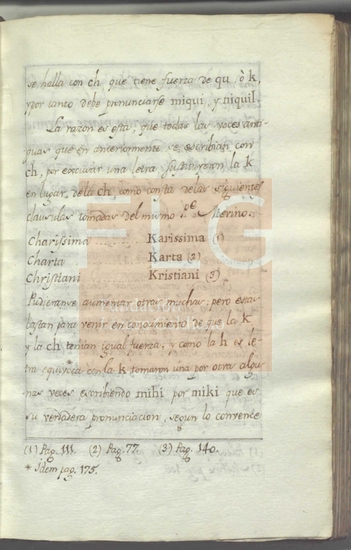 se halla con ch que tiene fuerza de qu, ò k,
y por tanto debe pronunciarse miqui, y niquil.
La razon es esta, que todas las voces anti-
guas que en anteriormente se escribian con
ch, por escusar una letra substituyeron la k
en lugar de la ch como consta de las siguientes
clausulas tomadas del mismo P.e Merino.
Charissima ........ Karissima (1)
Charta ........ Karta (2)
Christiani ........ Kristiani (3)
Pudieranse aumentar otras muchas, pero estas
bastan para venir en conocimiento de que la k
y la ch tenian igual fuerza, y como la h es le-
tra equivoca con la k tomaron una por otra algu-
nas veces escribiendo mihi por miki que es
su verdadera pronunciacion, segun lo convence
(1) Pag. 111. (2) Pag. 77. (3) Pag. 140.
* Idem pag. 175.
FLG